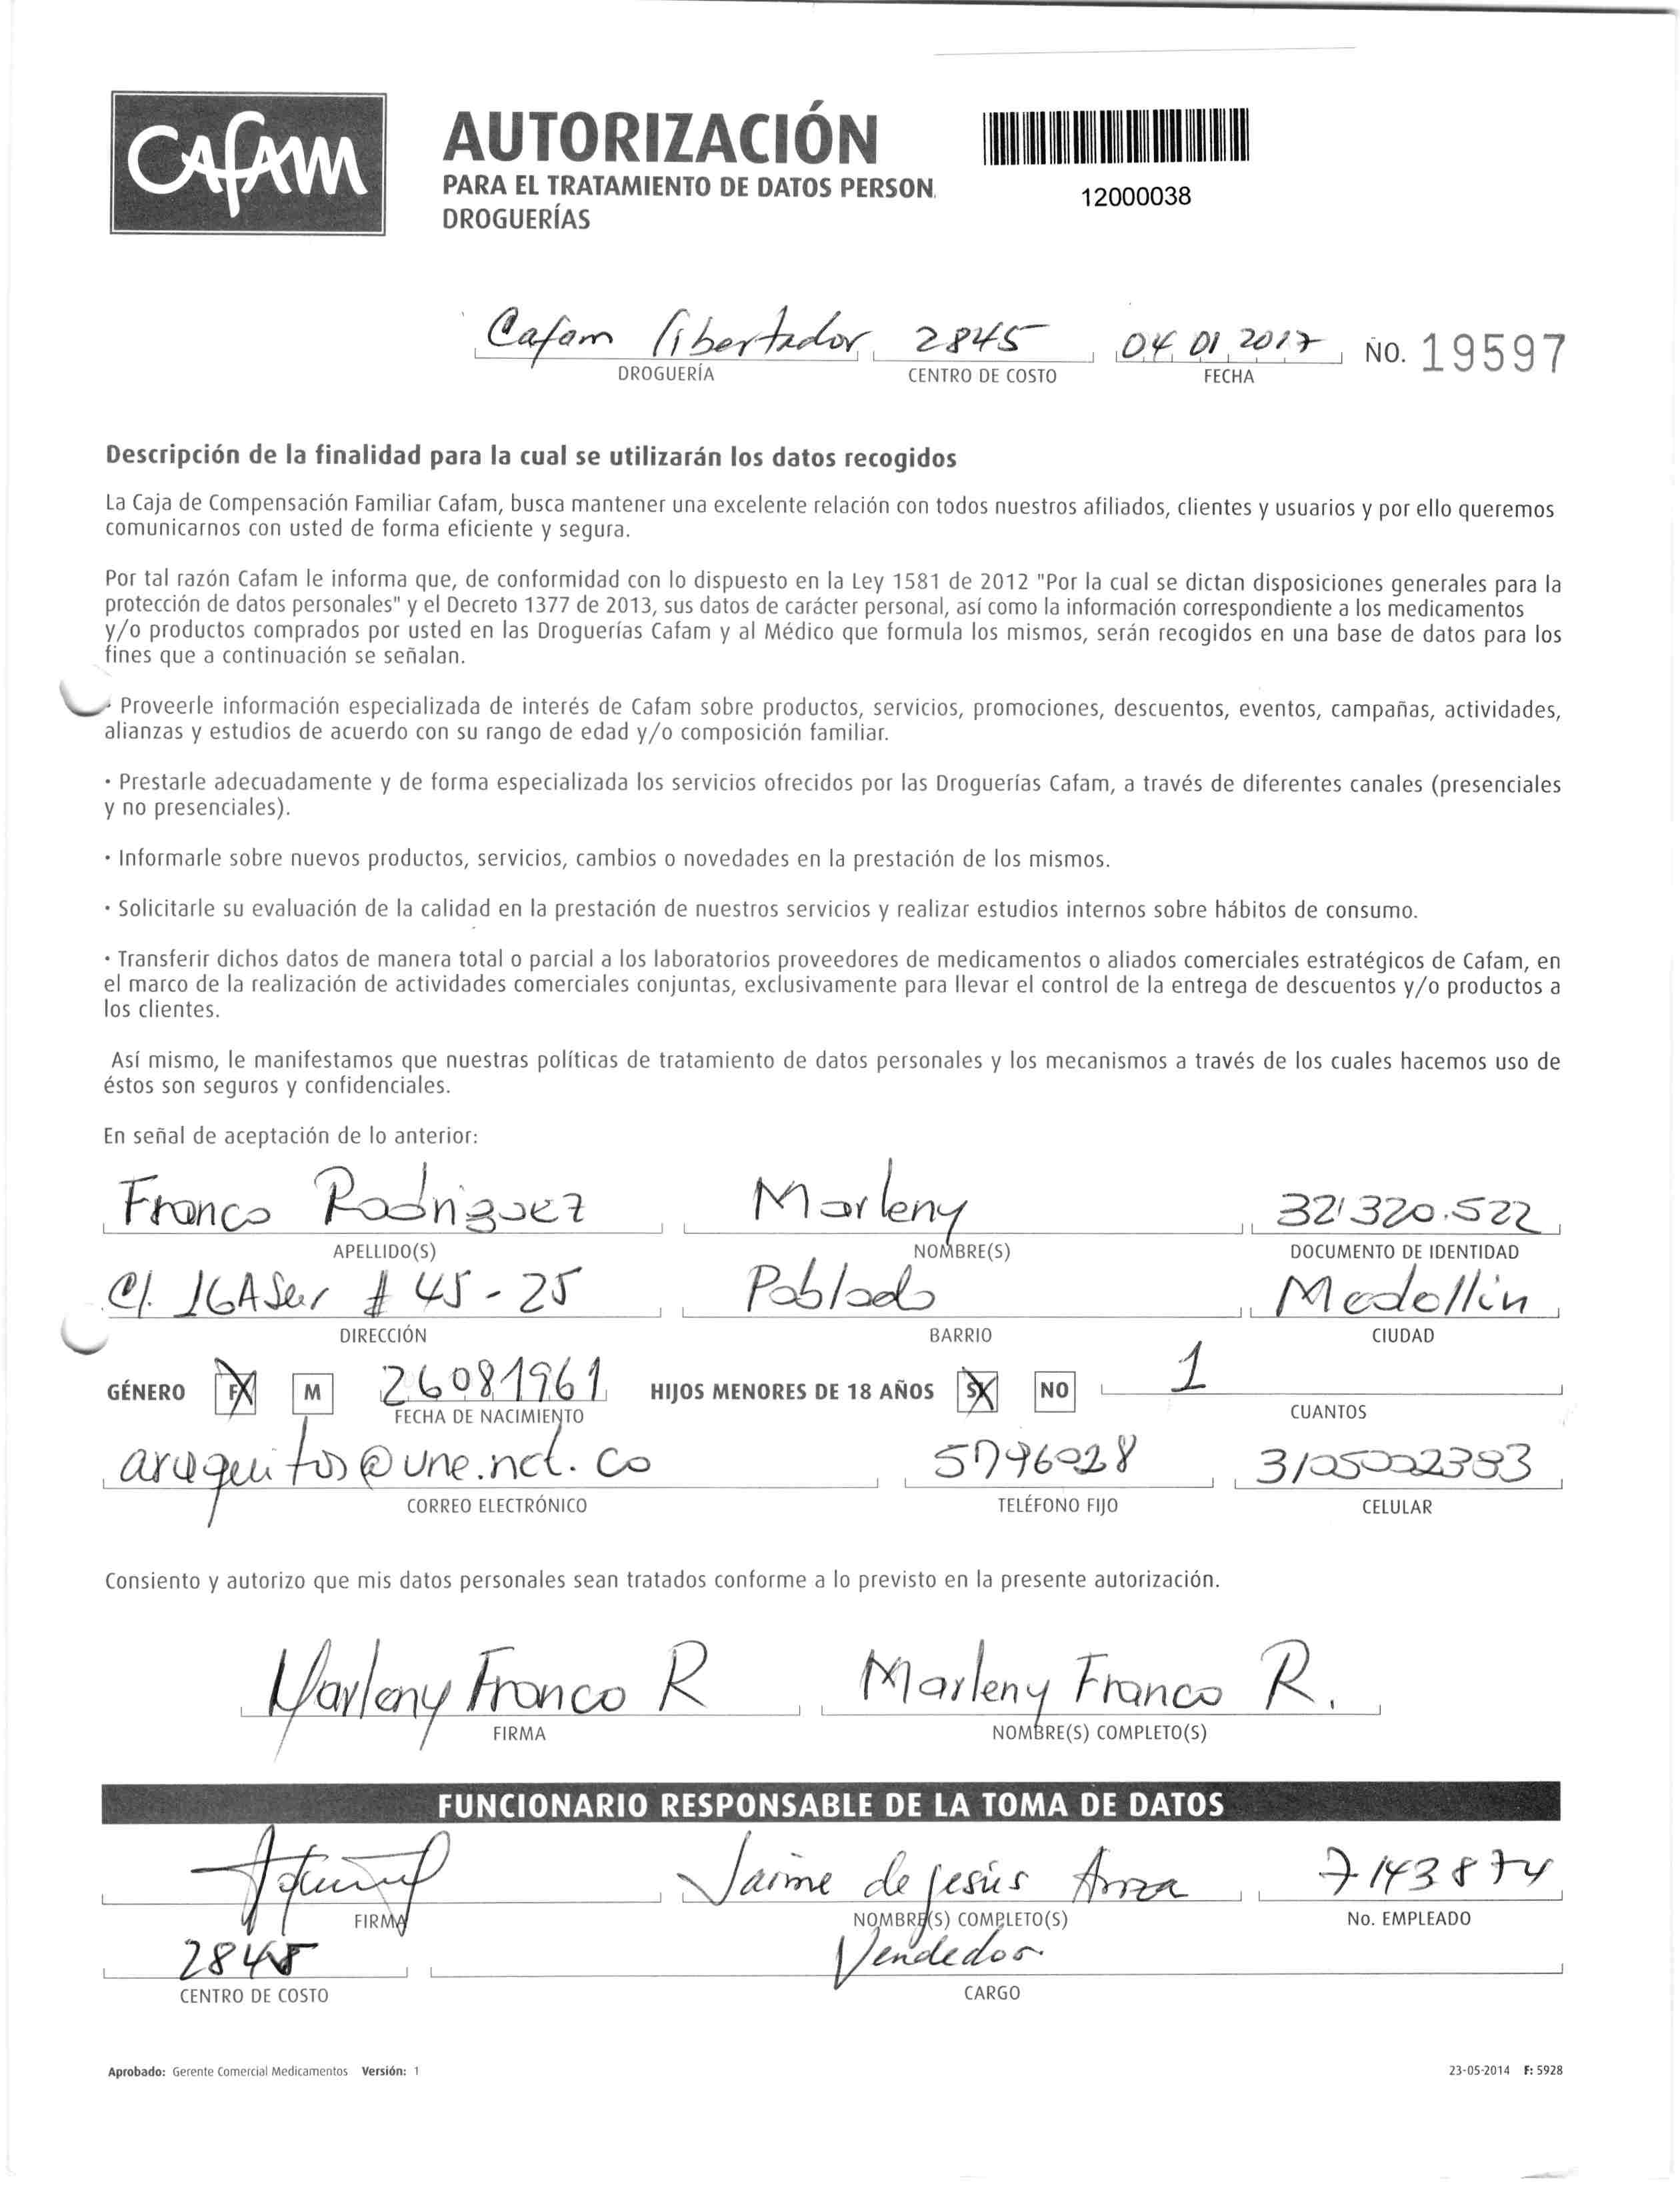 CAFAM
AUTORIZACIÓN
PARA EL TRATAMIENTO DE DATOS PERSON
DROGUERÍAS
12000038
Cafam libertador 2845 04 01 2017 NO. 19597
DROGUERÍA CENTRO DE COSTO FECHA
Descripción de la finalidad para la cual se utilizarán los datos recogidos
La Caja de Compensación Familiar Cafam, busca mantener una excelente relación con todos nuestros afiliados, clientes y usuarios y por ello queremos
comunicarnos con usted de forma eficiente y segura.
Por tal razón Cafam le informa que, de conformidad con lo dispuesto en la Ley 1581 de 2012 "Por la cual se dictan disposiciones generales para la
protección de datos personales" y el Decreto 1377 de 2013, sus datos de carácter personal, así como la información correspondiente a los medicamentos
y/o productos comprados por usted en las Droguerías Cafam y al Médico que formula los mismos, serán recogidos en una base de datos para los
fines que a continuación se señalan.
· Proveerle información especializada de interés de Cafam sobre productos, servicios, promociones, descuentos, eventos, campañas, actividades,
alianzas y estudios de acuerdo con su rango de edad y/o composición familiar.
· Prestarle adecuadamente y de forma especializada los servicios ofrecidos por las Droguerías Cafam, a través de diferentes canales (presenciales
y no presenciales).
· Informarle sobre nuevos productos, servicios, cambios o novedades en la prestación de los mismos.
· Solicitarle su evaluación de la calidad en la prestación de nuestros servicios y realizar estudios internos sobre hábitos de consumo.
· Transferir dichos datos de manera total o parcial a los laboratorios proveedores de medicamentos o aliados comerciales estratégicos de Cafam, en
el marco de la realización de actividades comerciales conjuntas, exclusivamente para llevar el control de la entrega de descuentos y/o productos a
los clientes.
Así mismo, le manifestamos que nuestras políticas de tratamiento de datos personales y los mecanismos a través de los cuales hacemos uso de
éstos son seguros y confidenciales.
En señal de aceptación de lo anterior:
Franco Rodriguez Marleny 32'320.522
APELLIDO(S) NOMBRE(S) DOCUMENTO DE IDENTIDAD
Cl. 16A Sur # 45 - 25 Poblado Medellin
DIRECCIÓN BARRIO CIUDAD
GÉNERO F M 26081961 HIJOS MENORES DE 18 AÑOS SI NO 1
FECHA DE NACIMIENTO CUANTOS
@une.net.co 5796028 3105002383
CORREO ELECTRÓNICO TELÉFONO FIJO CELULAR
Consiento y autorizo que mis datos personales sean tratados conforme a lo previsto en la presente autorización.
Marleny Franco R Marleny Franco R.
FIRMA NOMBRE(S) COMPLETO(S)
FUNCIONARIO RESPONSABLE DE LA TOMA DE DATOS
Jaime de jesús Ariza 7143874
FIRMA NOMBRE(S) COMPLETO(S) No. EMPLEADO
2845 Vendedor
CENTRO DE COSTO CARGO
Aprobado: Gerente Comercial Medicamentos Versión: 1 23-05-2014 F: 5928